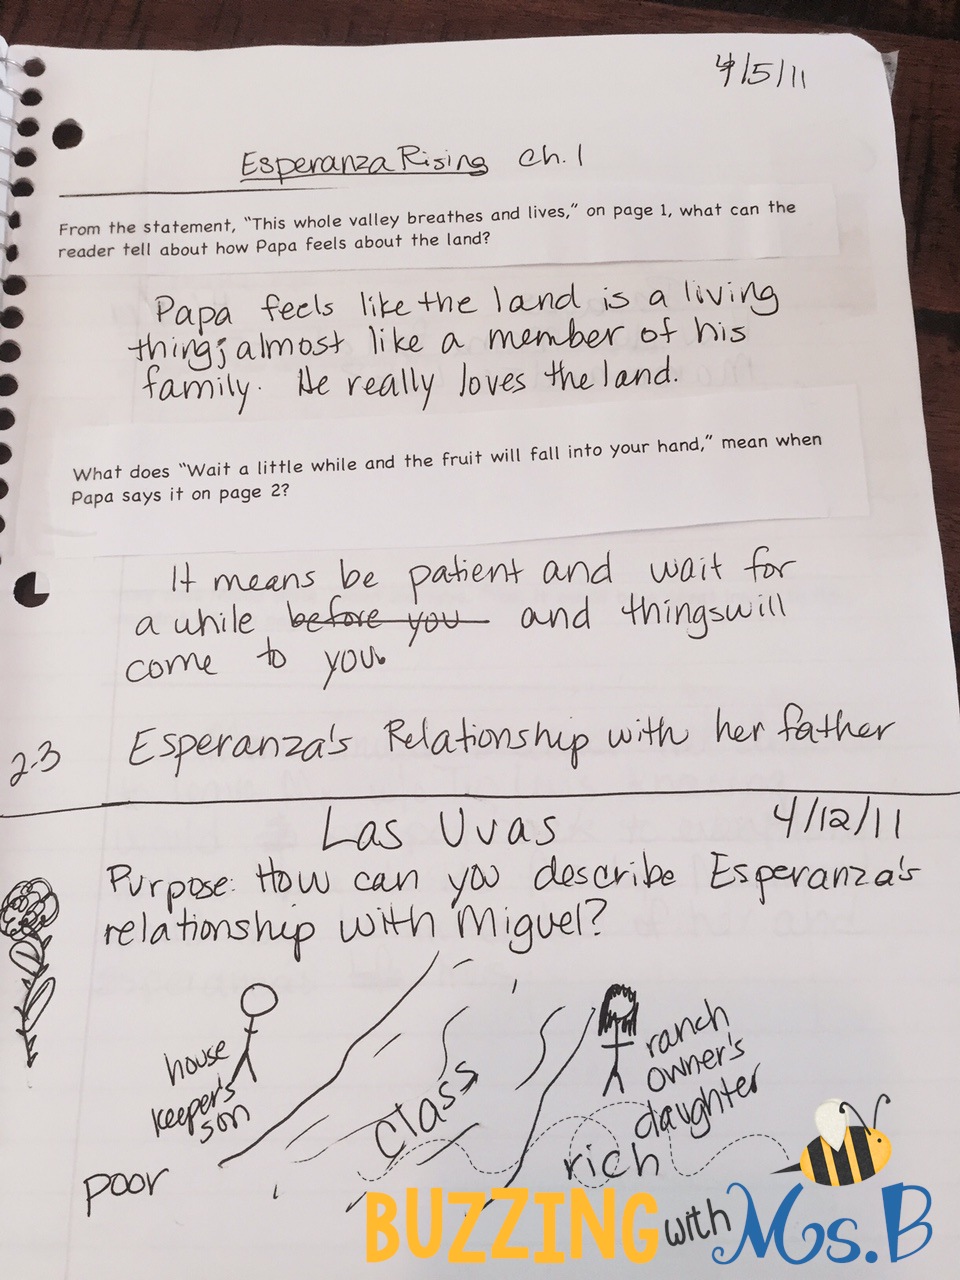 4/5/11
Esperanza Rising ch. 1
From the statement, “This whole valley breathes and lives,” on page 1, what can the
reader tell about how Papa feels about the land?
Papa feels like the land is a living
thing; almost like a member of his
family. He really loves the land.
What does “Wait a little while and the fruit will fall into your hand,” mean when
Papa says it on page 2?
It means be patient and wait for
a while before you and things will
come to you.
2-3 Esperanza's Relationship with her father
Las Uvas 4/12/11
Purpose: How can you describe Esperanza's
relationship with Miguel?
house
keeper's
son
poor
class
ranch
owner's
daughter
rich
BUZZING with Ms. B